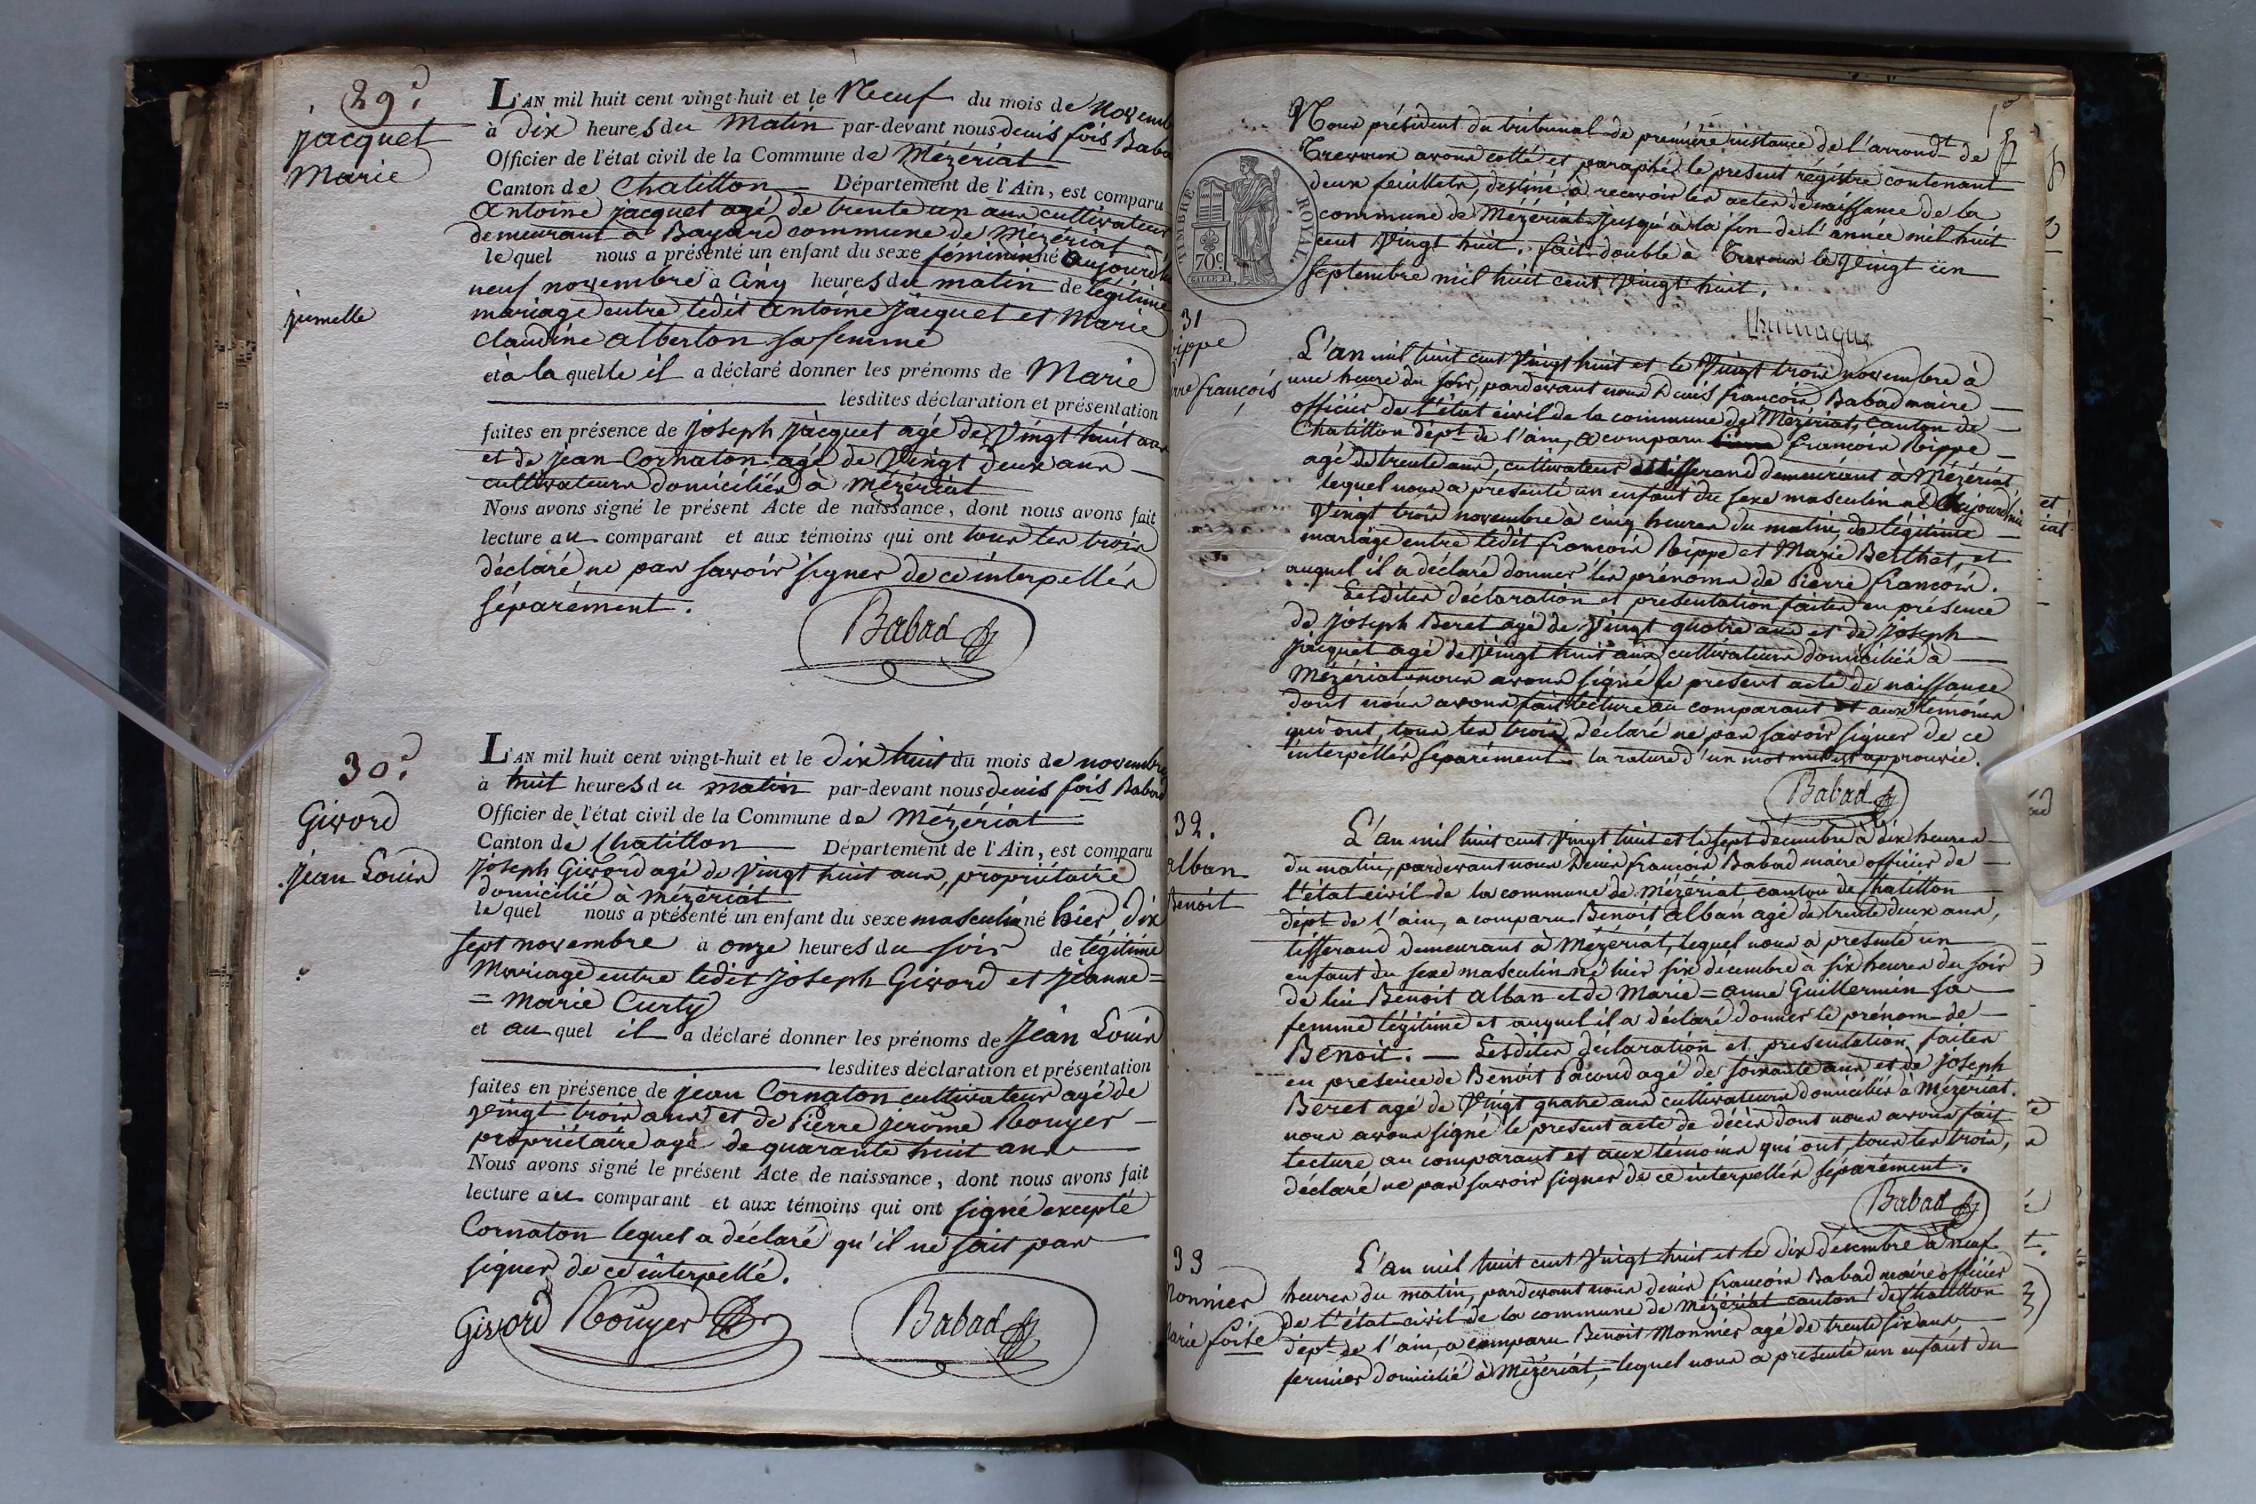 29.e
jacquet
Marie
jumelle
L'AN mil huit cent vingt-huit et le Neuf du mois de Novemb
à Dix heures du Matin par-devant nous denis fois Baba
Officier de l'état civil de la Commune de Mézériat
Canton de Chatillon Département de l'Ain, est comparu
Antoine jacquet agé de trente un ans cultivateur
demeurant à Bayard commune de Mezériat
lequel nous a présenté un enfant du sexe féminin né aujourd'hui
neuf novembre à Cinq heures du matin de légitime
mariage entre ledit Antoine jacquet et Marie
Claudine Alberton sa femme
et à laquelle il a déclaré donner les prénoms de Marie
lesdites déclaration et présentation
faites en présence de joseph jacquet agé de Vingt huit ans
et de jean Cornaton agé de Vingt deux ans
cultivateurs domiciliés à Mézériat
Nous avons signé le présent Acte de naissance, dont nous avons fait
lecture au comparant et aux témoins qui ont tous les trois
déclaré ne pas savoir signer de ce interpellés
séparément.
Babad
30.e
Givord
jean Louis
L'AN mil huit cent vingt-huit et le dix huit du mois de novembre
à huit heures du matin par-devant nous denis fois Babad
Officier de l'état civil de la Commune de Mézériat
Canton de Chatillon Département de l'Ain, est comparu
joseph Givord agé de Vingt huit ans, propriétaire
domicilié à Mézériat
lequel nous a présenté un enfant du sexe masculin né hier dix
sept novembre à onze heures du soir de légitime
Mariage entre ledit joseph Givord et jeanne=
=marie Curty
et auquel il a déclaré donner les prénoms de jean Louis
lesdites déclaration et présentation
faites en présence de jean Cornaton cultivateur agé de
vingt trois ans et de Pierre jerôme Rouyer
propriétaire agé de quarante huit ans
Nous avons signé le présent Acte de naissance, dont nous avons fait
lecture au comparant et aux témoins qui ont signé excepté
Cornaton lequel a déclaré qu'il ne sait pas
signer de ce interpellé.
Givord Rouyer Babad
Nous président du tribunal de première instance de l'arrondt de
Trevoux avons cotté et paraphé le present régistre contenant
deux feuillets, destiné à recevoir les actes de naissance de la
commune de Mézériat jusqu'à la fin de l'année mil huit
cent vingt huit. fait double à Trevoux le vingt un
septembre mil huit cent vingt huit.
TIMBRE ROYAL
70c
31
ippe
rre françois
L'an mil huit cent Vingt huit et le Vingt trois novembre à
une heure du soir, pardevant nous Denis françois Babad maire
officier de l'état civil de la commune de Mézériat, Canton de
Chatillon dépt de l'ain, a comparu françois Rippe
agé de trente ans, cultivateur et tisserand demeurant à Mézériat
lequel nous a présenté un enfant du sexe masculin né Aujourd'hui
Vingt trois novembre à cinq heures du matin, de légitime
mariage entre ledit françois Rippe et Marie Berthet, et
auquel il a déclaré donner les prénoms de Pierre françois.
Lesdites déclaration et presentation faites en présence
de joseph Beret agé de vingt quatre ans et de joseph
jacquet agé de vingt huit ans cultivateurs domiciliés à
Mézériat nous avons signé le present acte de naissance
dont nous avons fait lecture au comparant et aux témoins
qui ont, tous les trois, déclaré ne pas savoir signer de ce
interpellés separément la rature d'un mot est approuvée.
Babad
32.
alban
Benoit
L'an mil huit cent Vingt huit et le sept décembre à dix heures
du matin, pardevant nous Denis françois Babad maire officier de
l'état civil de la commune de Mézériat canton de Chatillon
dépt de l'ain, a comparu Benoit alban agé de trente deux ans,
tisserand demeurant à Mézériat, lequel nous a presenté un
enfant du sexe masculin né hier six décembre à six heures du soir
de lui Benoit alban et de Marie=anne Guillermin sa
femme légitime et auquel il a déclaré donner le prénom de
Benoit. Lesdites déclaration et presentation faites
en presence de Benoit Pacoud agé de soixante ans et de joseph
Beret agé de Vingt quatre ans cultivateurs domiciliés à Mézériat.
nous avons signé le present acte de décès dont nous avons fait
lecture au comparant et aux témoins qui ont, tous les trois,
déclaré ne pas savoir signer de ce interpellés séparément.
Babad
33
Monnier
Marie foise
L'an mil huit cent Vingt huit et le dix décembre à neuf
heures du matin, pardevant nous denis françois Babad maire officier
de l'état civil de la commune de Mézériat canton de Chatillon
dépt de l'ain, a comparu Benoit Monnier agé de trente six ans,
fermier domicilié à Mézériat, lequel nous a presenté un enfant du